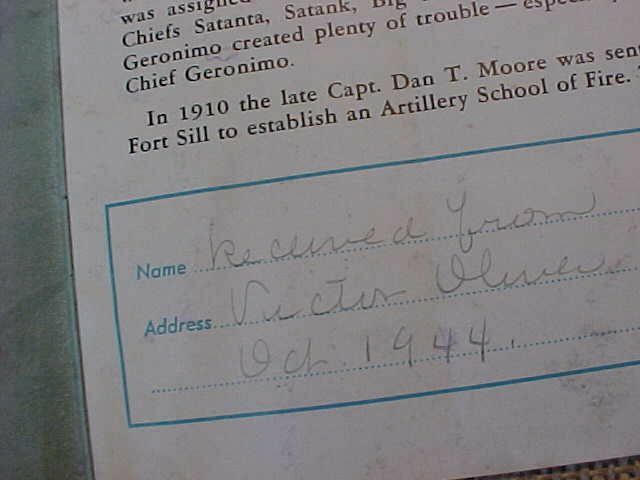 was assigned
Chiefs Satanta, Satank, Big
Geronimo created plenty of trouble — especially
Chief Geronimo.
In 1910 the late Capt. Dan T. Moore was sent
Fort Sill to establish an Artillery School of Fire.
Name Received from
Address Victor Oliver
Oct. 1944.